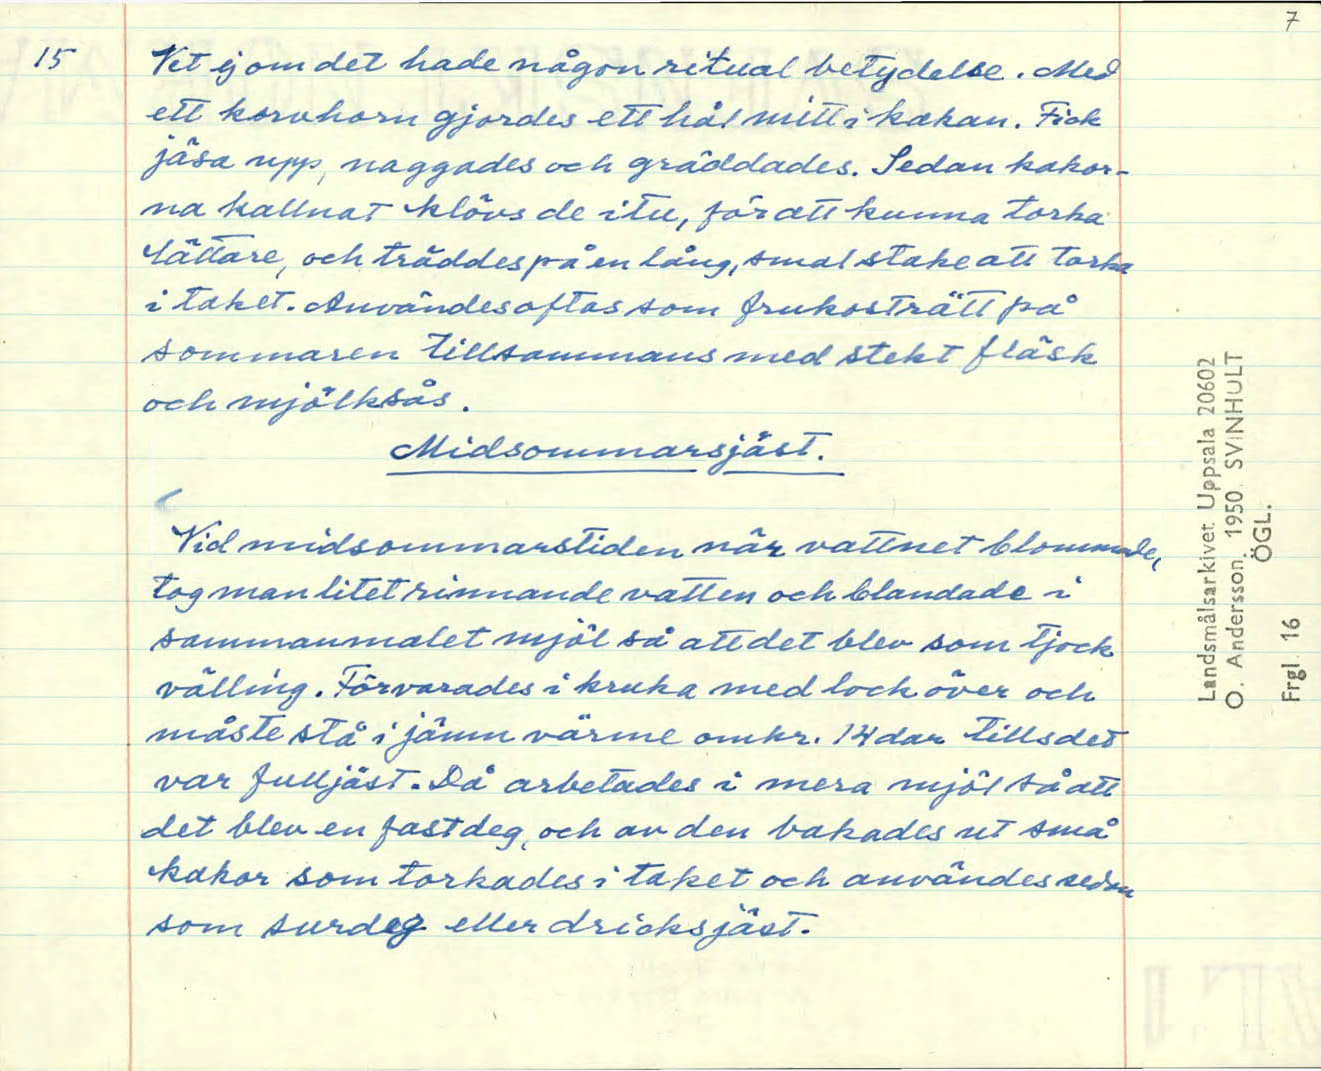 7
15 Vet ej om det hade någon ritual betydelse. Med
ett korvhorn gjordes ett hål mitt i kakan. Fick
jäsa upp, naggades och gräddades. Sedan kakor-
na kallnat klövs de itu, för att kunna torka
lättare, och träddes på en lång, smal stake att torka
i taket. Användes oftas som frukosträtt på
sommaren tillsammans med stekt fläsk
och mjölksås.
Midsommarsjäst.
Vid midsommarstiden när vattnet blommade,
tog man litet rinnande vatten och blandade i
sammanmalet mjöl så att det blev som tjock
välling. Förvarades i kruka med lock över och
måste stå i jämn värme omkr. 14 dar tills det
var fulljäst. Då arbetades i mera mjöl så att
det blev en fast deg, och av den bakades ut små
kakor som torkades i taket och användes sedan
som surdeg eller dricksjäst.
Landsmålsarkivet Uppsala 20602
O. Andersson. 1950. SVINHULT
ÖGL.
Frgl. 16